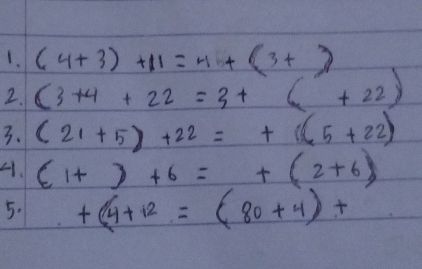 1. (4+3) +11 = 4 + (3+ )
2. (3+4 + 22 = 3 + ( + 22)
3. (21+5) +22 = + ((5+22)
4. (1+ ) +6 = + (2+6)
5. +(4+12 = (80+4) +